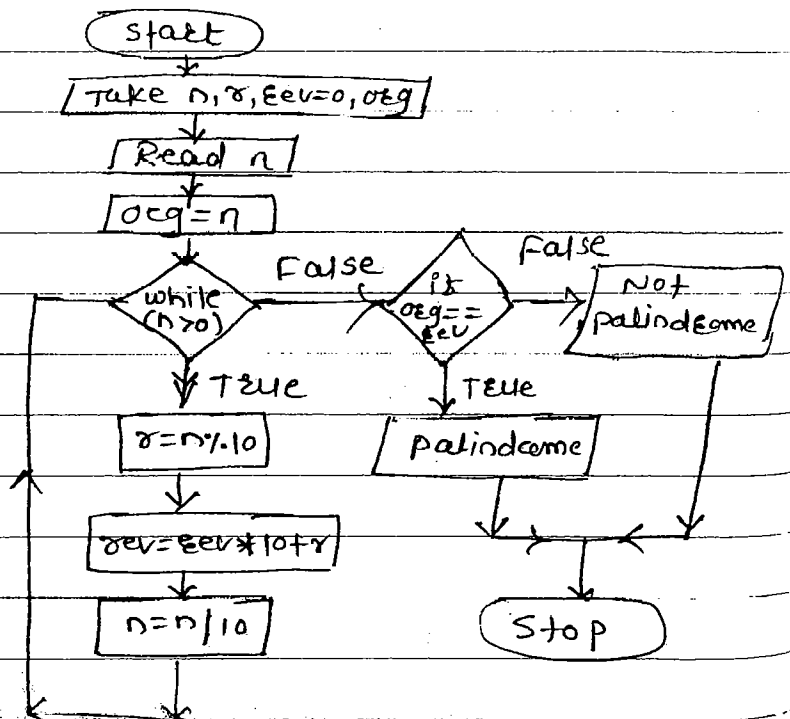 Start
Take n, r, rev=0, org
Read n
org=n
while
(n>0)
False
if
org==
rev
False
Not
palindrome
True
True
r=n%10
palindrome
rev=rev*10+r
n=n/10
Stop